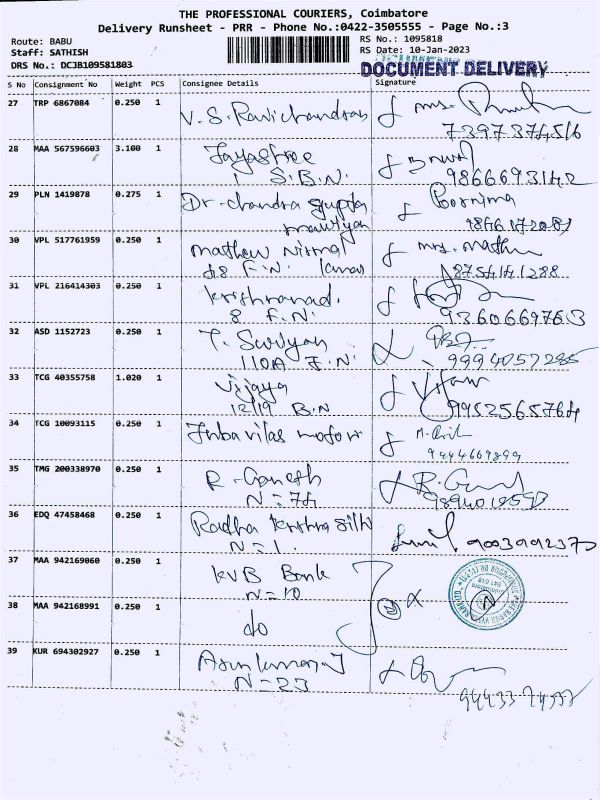 THE PROFESSIONAL COURIERS, Coimbatore
Delivery Runsheet - PRR - Phone No.:0422-3505555 - Page No.:3
Route: BABU
Staff: SATHISH
DRS No.: DCJB109581803
RS No.: 1095818
RS Date: 10-Jan-2023
DOCUMENT DELIVERY
S No Consignment No Weight PCS Consignee Details Signature
27 TRP 6867084 0.250 1 V.S. Ravichandran Mrs.
7397374516
28 MAA 567596603 3.100 1 Jayashree
S.B.N. 9866693142
29 PLN 1419878 0.275 1 Dr. chandra gupta Poornima
mauriya
30 VPL 517761959 0.250 1 mathew nirmal mrs.
F.N. 8754141288
31 VPL 216414303 0.250 1
8 F.N. 9360669763
32 ASD 1152723 0.250 1 T.
110A F.N. 9994057285
33 TCG 40355758 1.020 1 Vijaya
12/19 B.N 9952565764
34 TCG 10093115 0.250 1
9444669899
35 TMG 200338970 0.250 1 R. Ganesh R.
N=74
36 EDQ 47458468 0.250 1 Radha krishna silk
N=1. 9003992370
37 MAA 942169060 0.250 1 KVB Bank
N=10
38 MAA 942168991 0.250 1 do
39 KUR 694302927 0.250 1 Arunkumar J
N=23